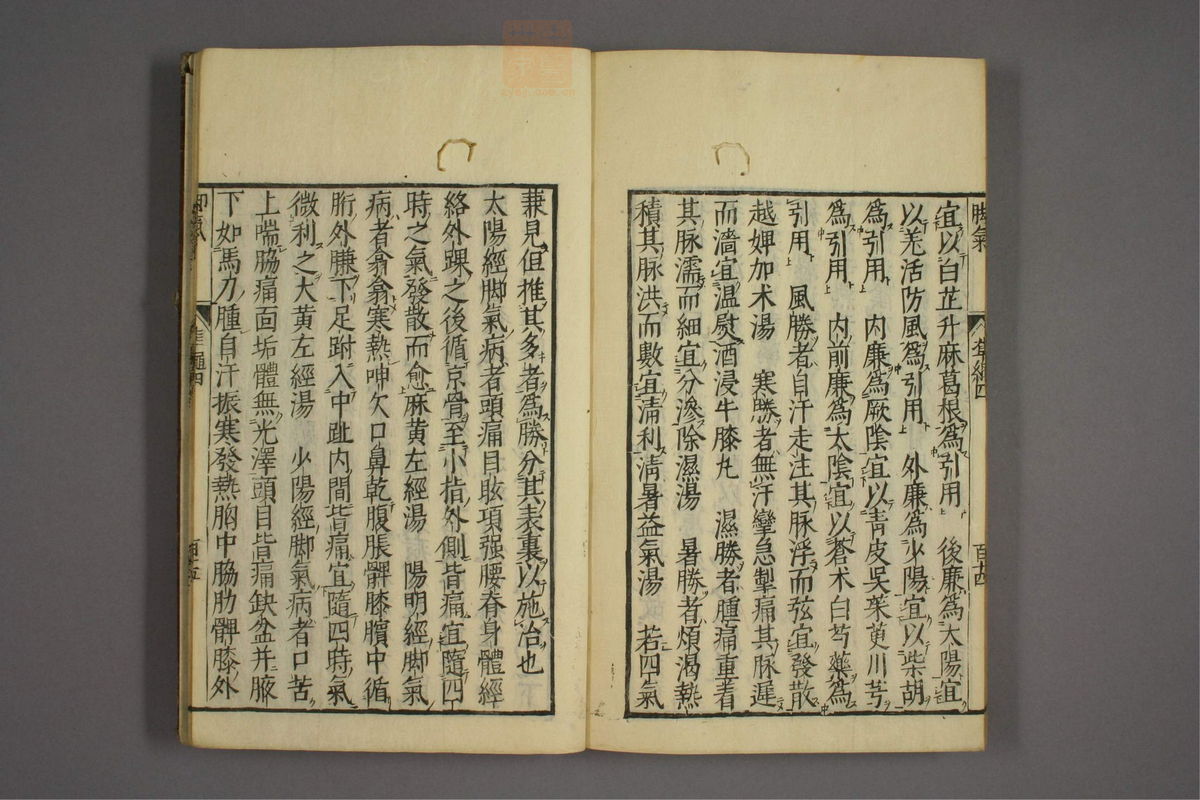 脚氣
百十四
宜以白芷升麻葛根爲引用　後廉爲太陽宜
以羌活防風爲引用　外廉爲少陽宜以柴胡
爲引用　内廉爲厥陰宜以青皮吳茱萸川芎
爲引用　内前廉爲太陰宜以蒼术白芍藥爲
引用　風勝者自汗走注其脉浮而弦宜發散
越婢加术湯　寒勝者無汗攣急掣痛其脉遲
而濇宜温熨酒浸牛膝丸　濕勝者腫痛重着
其脉濡而細宜分滲除濕湯　暑勝者煩渴熱
積其脉洪而數宜清利清暑益氣湯　若四氣
兼見但推其多者爲勝分其表裏以施治也
太陽經脚氣病者頭痛目眩項强腰脊身體經
絡外踝之後循京骨至小指外側皆痛宜隨四
時之氣發散而愈麻黄左經湯　陽明經脚氣
病者翕翕寒熱呻欠口鼻乾腹脹髀膝臏中循
胻外臁下足跗入中趾内間皆痛宜隨四時氣
微利之大黄左經湯　少陽經脚氣病者口苦
上喘脇痛面垢體無光澤頭目皆痛缺盆并腋
下如馬刀腫自汗振寒發熱胸中脇肋髀膝外